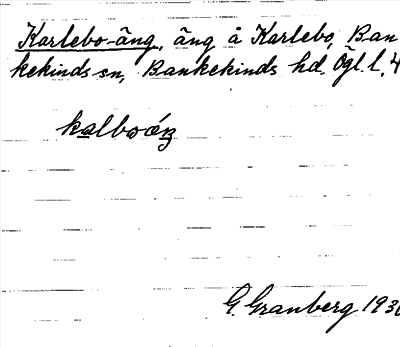 Karlebo-äng, äng å Karlebo, Ban
kekinds sn, Bankekinds hd. Ögl. l. 4
G. Granberg 193